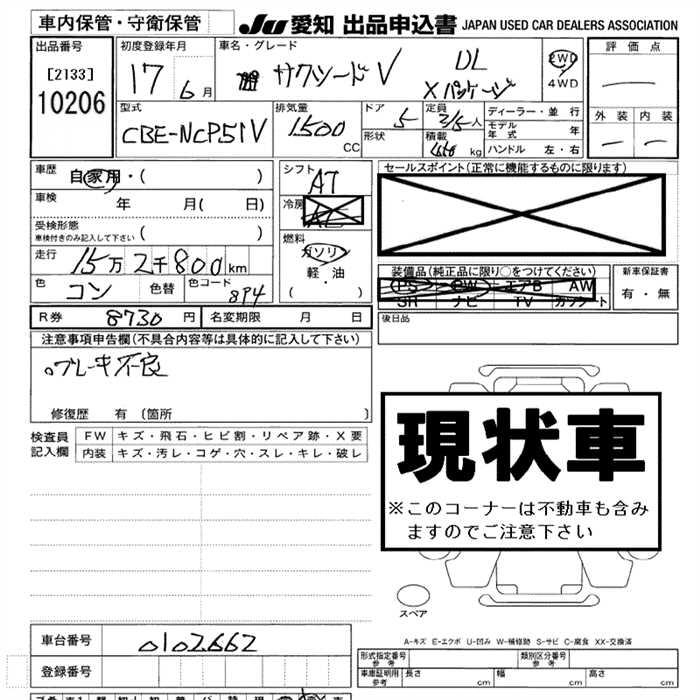 車内保管・守衛保管 JU 愛知 出品申込書 JAPAN USED CAR DEALERS ASSOCIATION
出品番号 初度登録年月 車名・グレード 評価点
[2133] 17 6月 サクシードV UL 2WD
10206 Xパッケージ 4WD
型式 排気量 ドア 定員 ディーラー・並行 外装 内装
CBE-NCP51V 1500CC 5 2/5人 モデル年式 年
形状 積載 kg ハンドル 左・右
車歴 自家用・( ) シフト AT セールスポイント(正常に機能するものに限ります)
車検 年 月(日) 冷房 AC
受検形態
車検付きのみ記入して下さい ( ) 燃料 ガソリン
走行 15万2千800km 軽・油 装備品(純正品に限り○をつけてください) 新車保証書
色 コン 色替 色コード 8P4 (・) PS PW エアB AW 有・無
SR ナビ TV カワシート
R券 8730円 名変期限 月 日 後日品
注意事項申告欄(不具合内容等は具体的に記入して下さい)
。ブレーキ不良
修復歴 有 〔箇所 〕
検査員 FW キズ・飛石・ヒビ割・リペア跡・X要
記入欄 内装 キズ・汚レ・コゲ・穴・スレ・キレ・破レ
現状車
※このコーナーは不動車も含み
ますのでご注意下さい
スペア
A-キズ E-エクボ U-凹み W-補修跡 S-サビ C-腐食 XX-交換済
車台番号 0102662 形式指定番号 参考 類別区分番号 参考
登録番号 車庫証明用 参考 長さ cm 幅 cm 高さ cm